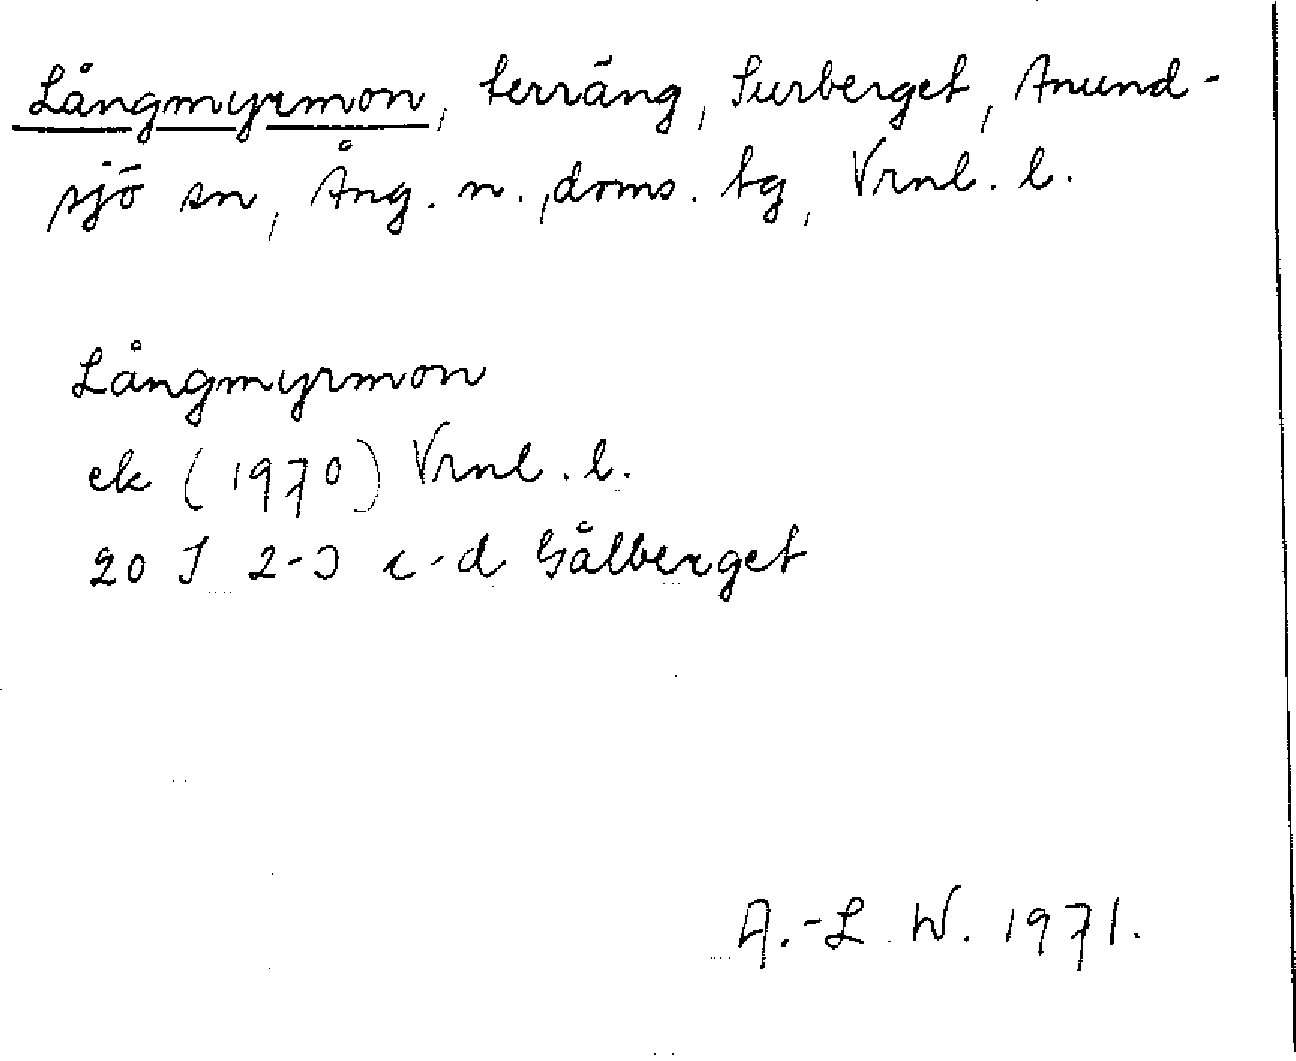 Långmyrmon, terräng, Surberget, Anund-
sjö sn, Ång. n., doms. tg, Vrnl. l.
Långmyrmon
ek (1970) Vrnl. l.
20 I 2-3 c-d Gålberget
A.-L. W. 1971.